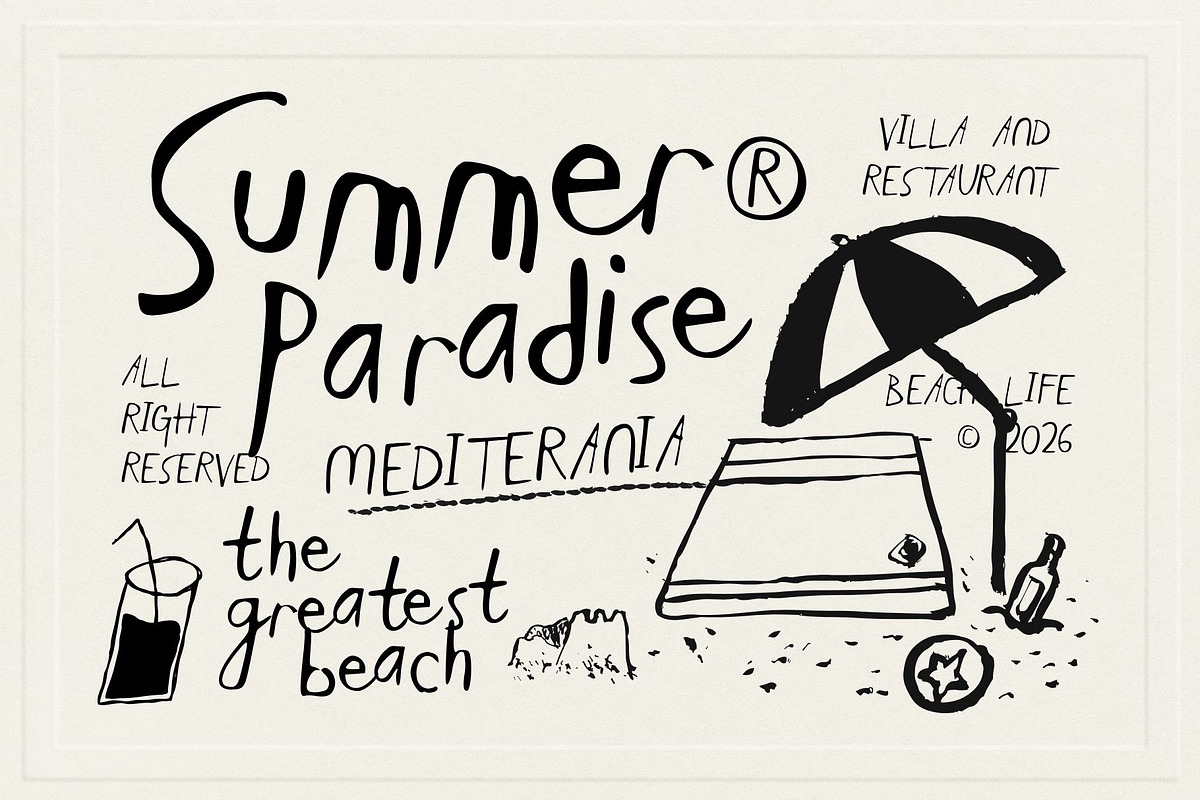 Summer®
Paradise
VILLA AND
RESTAURANT
ALL
RIGHT
RESERVED
MEDITERANIA
BEACH LIFE
© 2026
the
greatest
beach